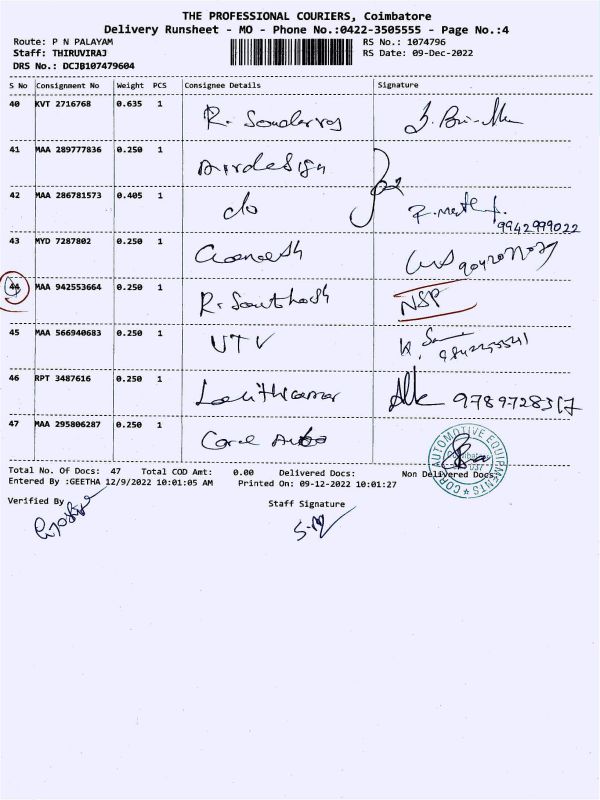 THE PROFESSIONAL COURIERS, Coimbatore
Delivery Runsheet - MO - Phone No.:0422-3505555 - Page No.:4
Route: P N PALAYAM
Staff: THIRUVIRAJ
DRS No.: DCJB107479604
RS No.: 1074796
RS Date: 09-Dec-2022
S No Consignment No Weight PCS Consignee Details Signature
40 KVT 2716768 0.635 1
41 MAA 289777836 0.250 1 Airdesign
42 MAA 286781573 0.405 1 do
9942999022
43 MYD 7287802 0.250 1 Ganesh
44 MAA 942553664 0.250 1 R. Santhosh NSP
45 MAA 566940683 0.250 1 UTV
46 RPT 3487616 0.250 1 9789728317
47 MAA 295806287 0.250 1
Total No. Of Docs: 47 Total COD Amt: 0.00 Delivered Docs: Non Delivered Docs:
Entered By :GEETHA 12/9/2022 10:01:05 AM Printed On: 09-12-2022 10:01:27
Verified By
Staff Signature
AUTOMOTIVE EQUIPMENTS